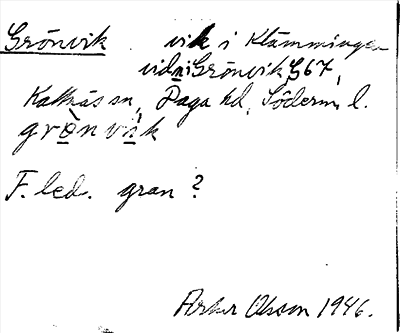 Grönvik vik i Klämmingen
vid Grönvik G67,
Kattnäs sn, Daga hd, Söderm. l.
F. led. gran?
Arthur Olsson 1946.